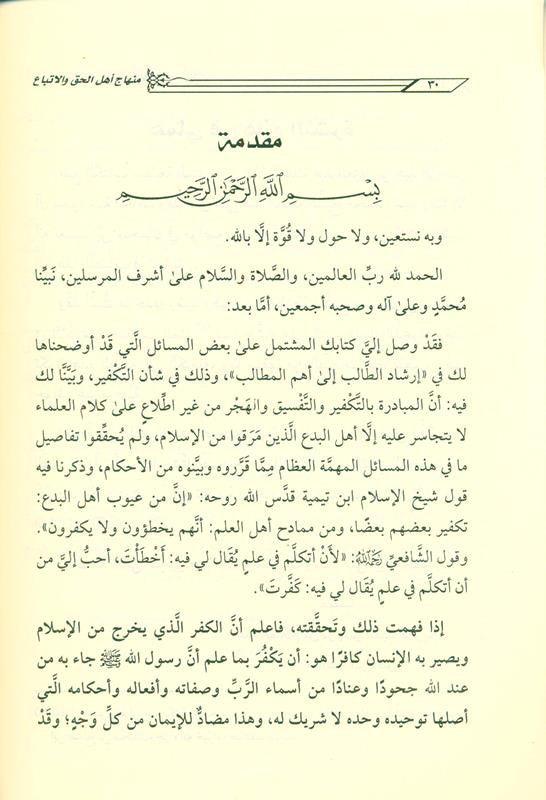 ٣٠
منهاج أهل الحق والاتباع
مقدمة
بِسْمِ اللَّهِ الرَّحْمَٰنِ الرَّحِيمِ
وبه نستعين، ولا حول ولا قُوَّة إلَّا بالله.
الحمد لله ربِّ العالمين، والصَّلاة والسَّلام علىٰ أشرف المرسلين، نَبيِّنا
مُحمَّدٍ وعلىٰ آله وصحبه أجمعين، أمَّا بعد:
فقَدْ وصل إليَّ كتابك المشتمل علىٰ بعض المسائل الَّتي قَدْ أوضحناها
لك في «إرشاد الطَّالب إلىٰ أهم المطالب»، وذلك في شأن التَّكْفير، وبيَّنَّا لك
فيه: أنَّ المبادرة بالتَّكْفير والتَّفْسيق والهَجْر من غير اطِّلاعٍ علىٰ كلام العلماء
لا يتجاسر عليه إلَّا أهل البدع الَّذين مَرَقوا من الإسلام، ولم يُحقِّقوا تفاصيل
ما في هذه المسائل المهمَّة العظام مِمَّا قَرَّروه وبيَّنوه من الأحكام، وذكرنا فيه
قول شيخ الإسلام ابن تيمية قدَّس الله روحه: «إنَّ من عيوب أهل البدع:
تكفير بعضهم بعضًا، ومن ممادح أهل العلم: أنَّهم يخطؤون ولا يكفرون».
وقول الشَّافعيِّ رَحِمَهُ اللهُ: «لأَنْ أتكلَّم في علمٍ يُقَال لي فيه: أَخْطأْتَ، أحبُّ إليَّ من
أن أتكلَّم في علمٍ يُقَال لي فيه: كَفَّرتَ».
إذا فهمت ذلك وتَحقَّقته، فاعلم أنَّ الكفر الَّذي يخرج من الإسلام
ويصير به الإنسان كافرًا هو: أن يَكْفُرَ بما علم أنَّ رسول الله ﷺ جاء به من
عند الله جحودًا وعنادًا من أسماء الرَّبِّ وصفاته وأفعاله وأحكامه الَّتي
أصلها توحيده وحده لا شريك له، وهذا مضادٌّ للإيمان من كلِّ وَجْهٍ؛ وقَدْ